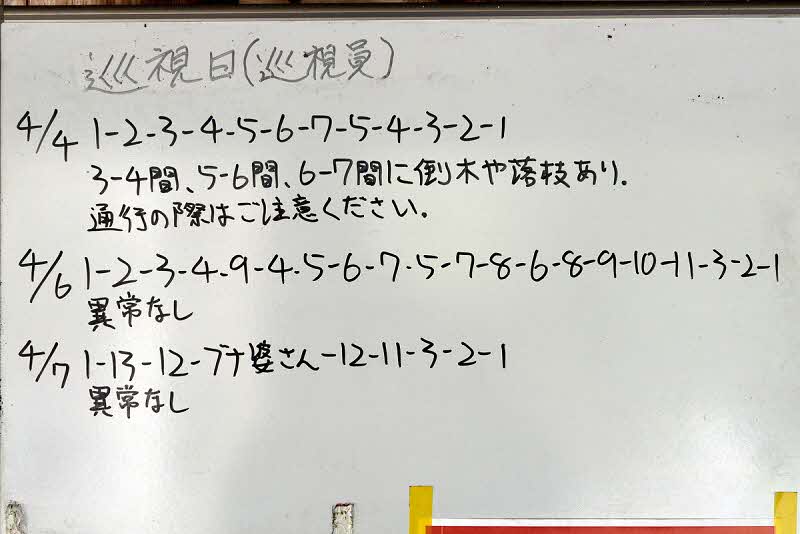 巡視日(巡視員)
4/4 1-2-3-4-5-6-7-5-4-3-2-1
3-4間、5-6間、6-7間に倒木や落枝あり.
通行の際はご注意ください。
4/6 1-2-3-4-9-4-5-6-7-5-7-8-6-8-9-10-11-3-2-1
異常なし
4/7 1-13-12-ブナ婆さん-12-11-3-2-1
異常なし